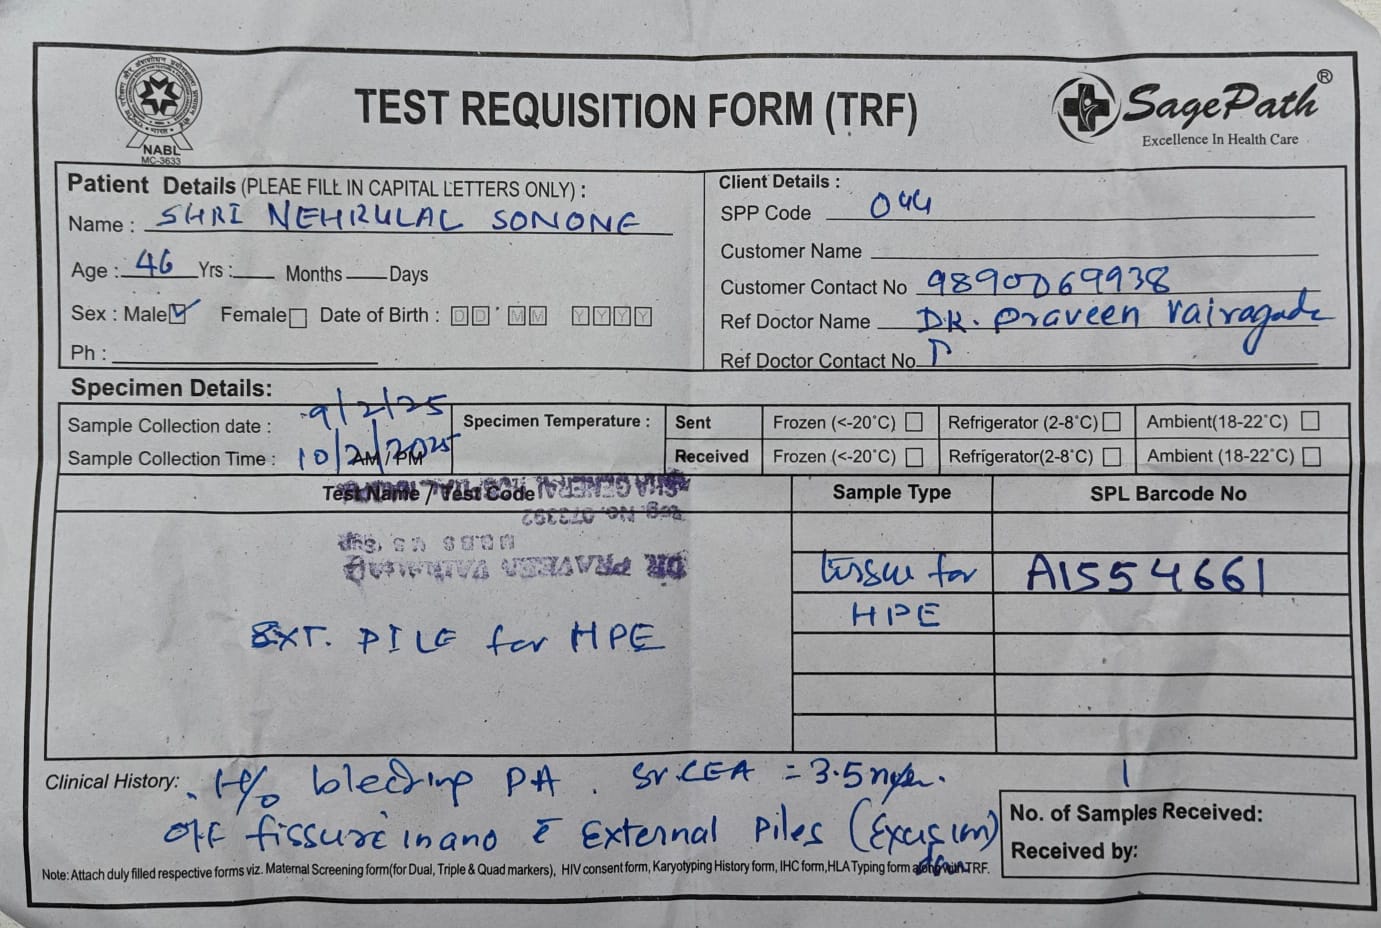 NABL
MC-3633
TEST REQUISITION FORM (TRF)
SagePath®
Excellence In Health Care
Patient Details (PLEAE FILL IN CAPITAL LETTERS ONLY) :
Name : SHRI NEHRULAL SONONE
Age : 46 Yrs : Months Days
Sex : Male ☑ Female ☐ Date of Birth : DD MM YYYY
Ph :
Client Details :
SPP Code 044
Customer Name
Customer Contact No 9890069938
Ref Doctor Name DR. Praveen Vairagade
Ref Doctor Contact No.
Specimen Details:
Sample Collection date : 9/2/25
Sample Collection Time : AM/PM 10/2/2025
Specimen Temperature :
Sent Frozen (<-20°C) ☐ Refrigerator (2-8°C) ☐ Ambient(18-22°C) ☐
Received Frozen (<-20°C) ☐ Refrigerator(2-8°C) ☐ Ambient (18-22°C) ☐
Test Name / Test Code Sample Type SPL Barcode No
DR PRAVEEN
tissue for A1554661
HPE
EXT. PILE for HPE
Clinical History: H/o bleeding PA. Sr.CEA = 3.5
O/F fissure in ano c̄ External Piles (Excision)
done
1
No. of Samples Received:
Received by:
Note: Attach duly filled respective forms viz. Maternal Screening form(for Dual, Triple & Quad markers), HIV consent form, Karyotyping History form, IHC form,HLA Typing form along with TRF.